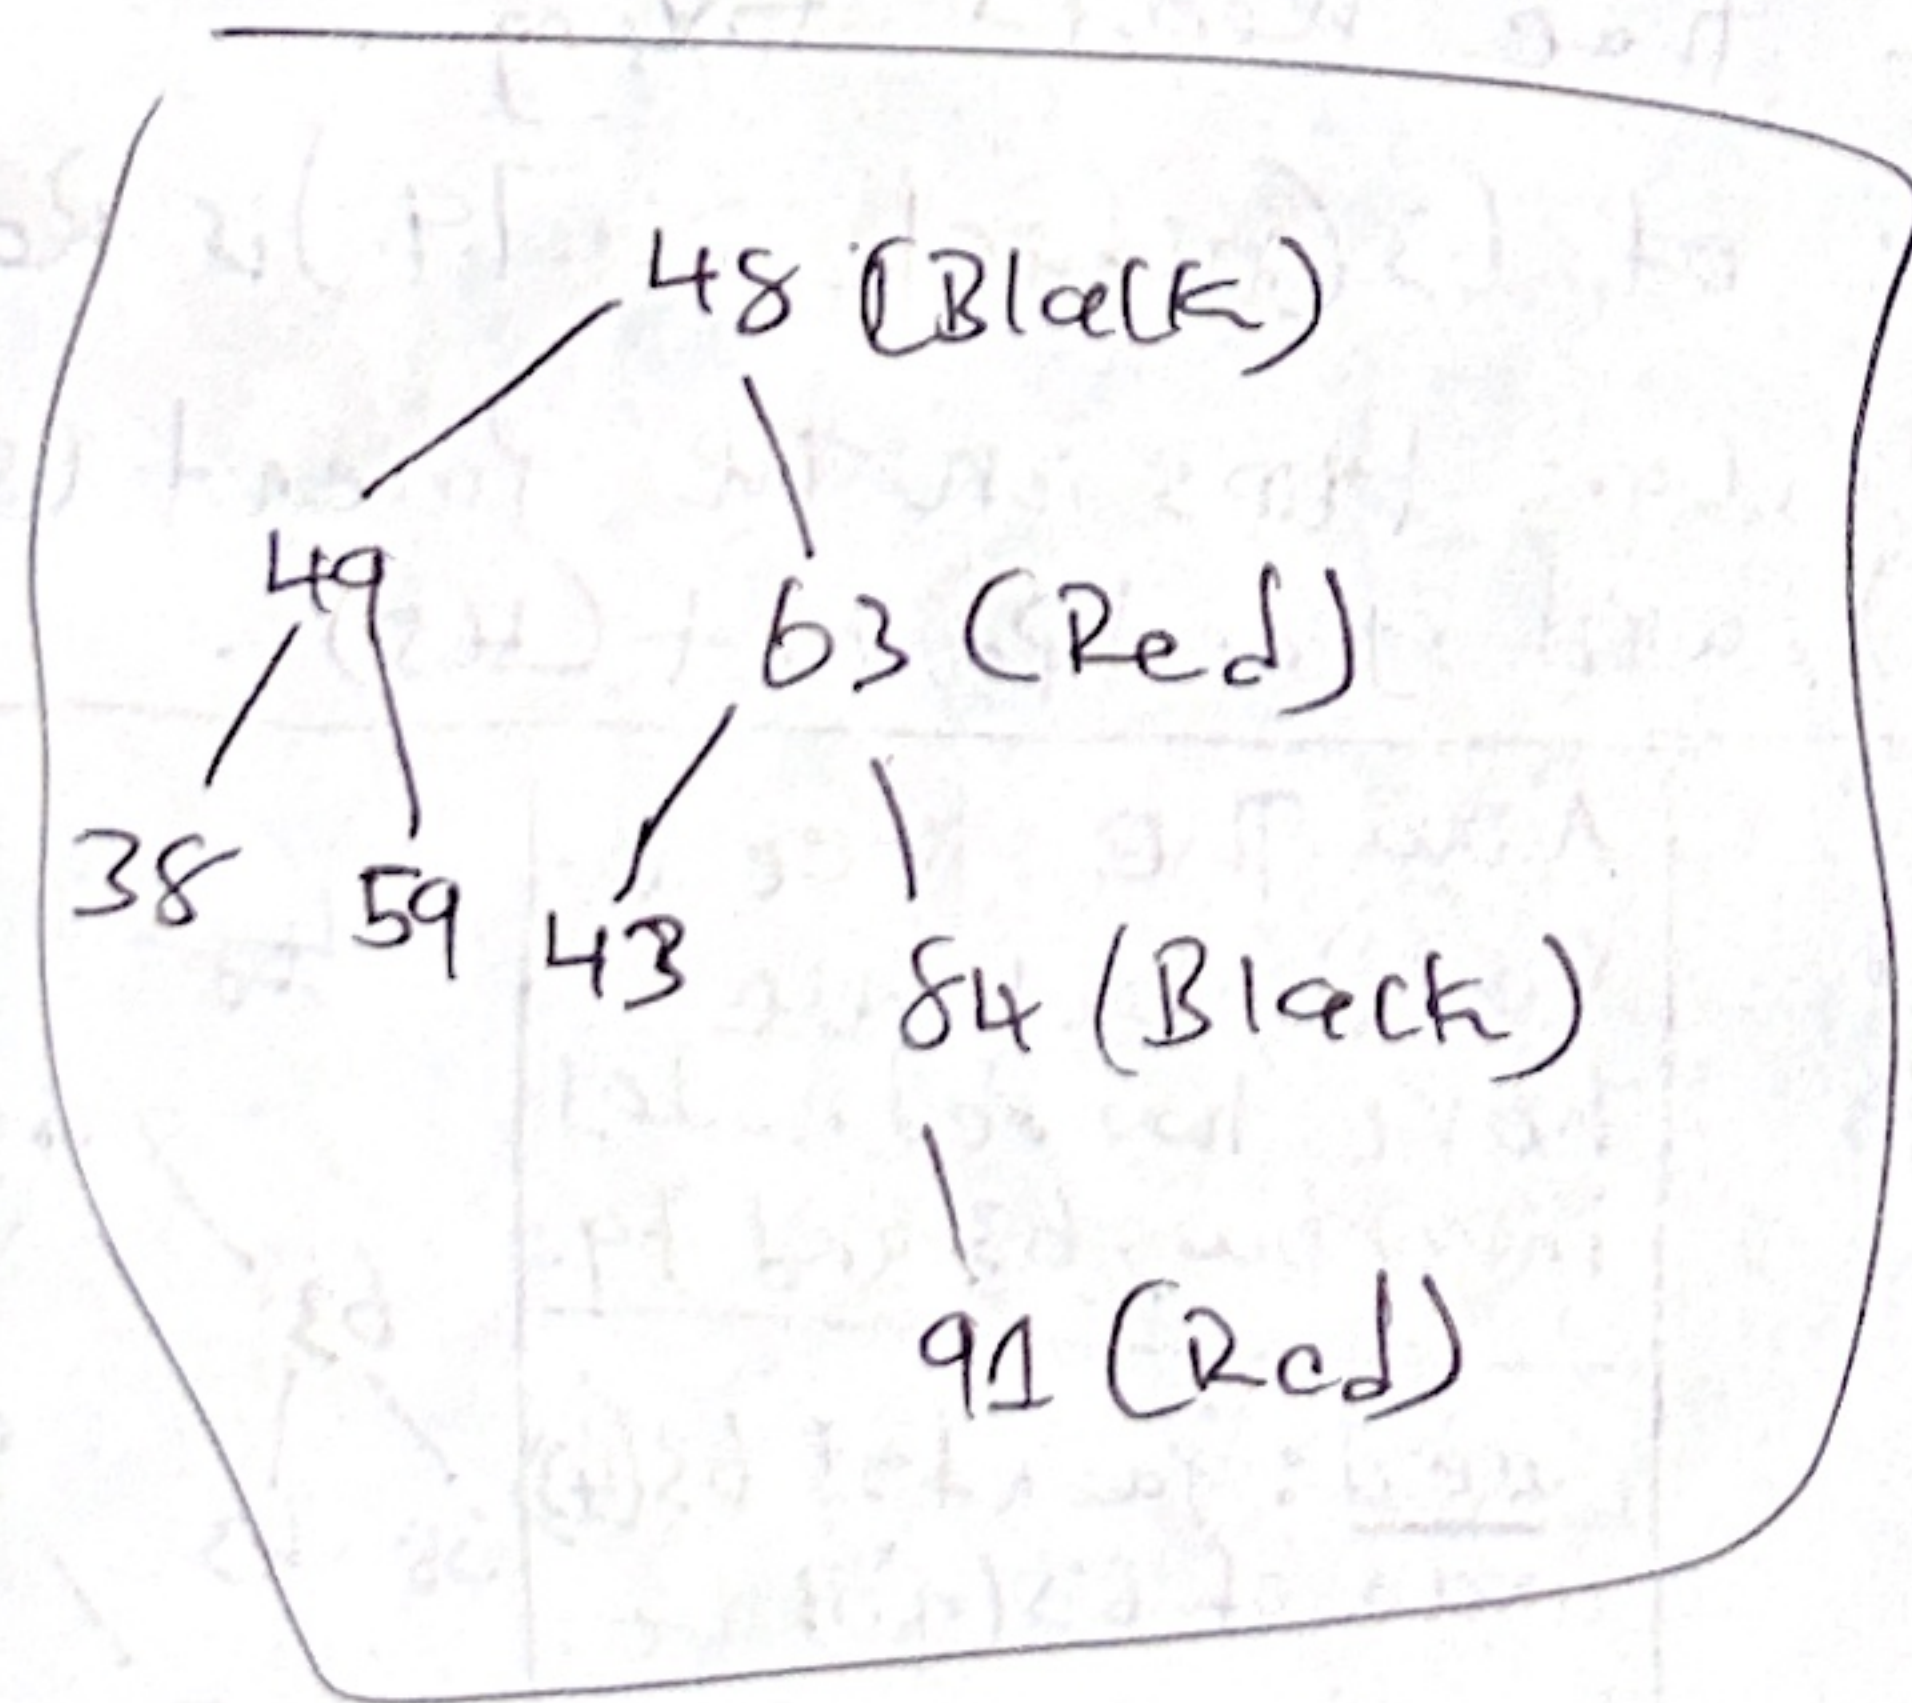 48 (Black)
49
63 (Red)
38 59 43
84 (Black)
91 (Red)